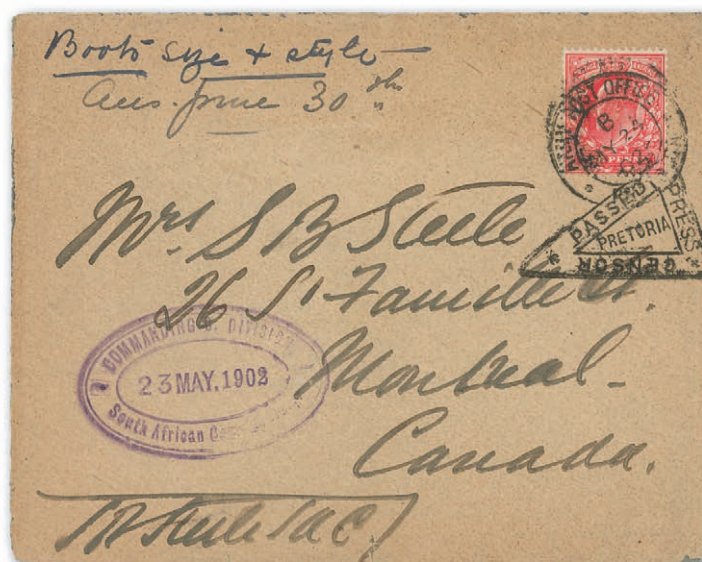 Boots size & style
Ans. June 30th
ARMY POST OFFICE
B
MAY 24
02
PENNY
PASSED PRESS CENSOR
PRETORIA
Mrs S B Steele
26 St Famille St.
Montreal
Canada.
COMMANDING B. DIVISION
23 MAY. 1902
South African
S B Steele